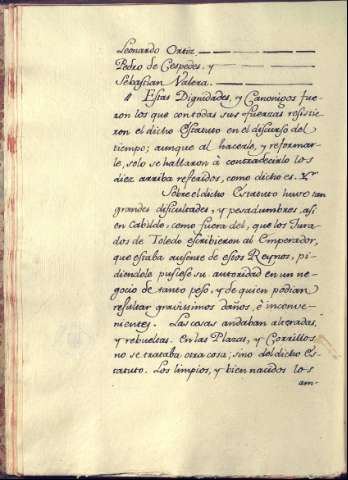 Leonardo Ortiz
Pedro de Cespedes. y
Sebastian Valera.
Estas Dignidades, y Canonigos fue-
ron los que con todas sus fuerzas resistie-
ron el dicho Estatuto en el discurso del
tiempo; aunque al hacerle, y reformar-
le, solo se hallaron à contradecirlo los
diez arriba referidos, como dicho es.
Sobre el dicho Estatuto huvo tan
grandes dificultades, y pesadumbres, asi
en Cabildo, como fuera del, que los Jura-
dos de Toledo escribieron al Emperador,
que estaba ausente de estos Reynos, pi-
diendole pusiese su autoridad en un ne-
gocio de tanto peso, y de quien podian
resultar gravisimos daños, è inconve-
nientes. Las cosas andaban alteradas,
y rebueltas. En las Plazas, y Corrillos
no se trataba otra cosa, sino del dicho Es-
tatuto. Los limpios, y bien nacidos los
am-